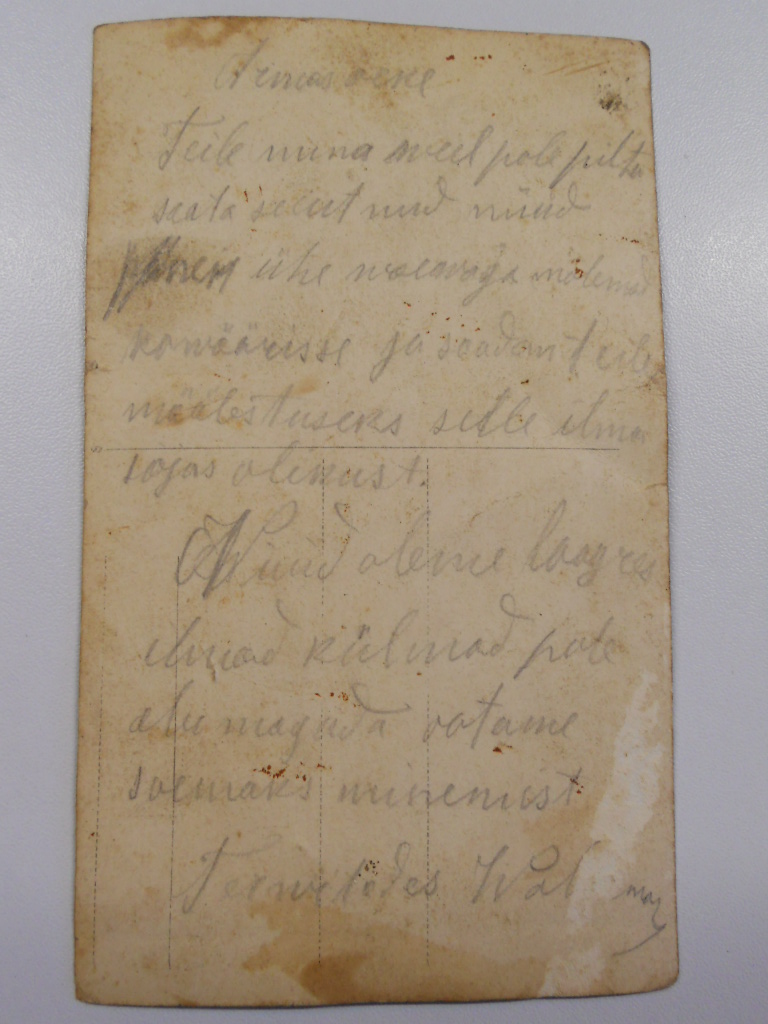 Armas õeke
Teile mina weel pole pilti
saata saanud nüüd
panen ühe mõlemad
konwäärisse ja saadan teile
määlestuseks selle ilma
sojas olekust.
Nüüd oleme laagres
ilmad külmad pole
abu magada ootame
soemaks minemist
Terwitades Wol